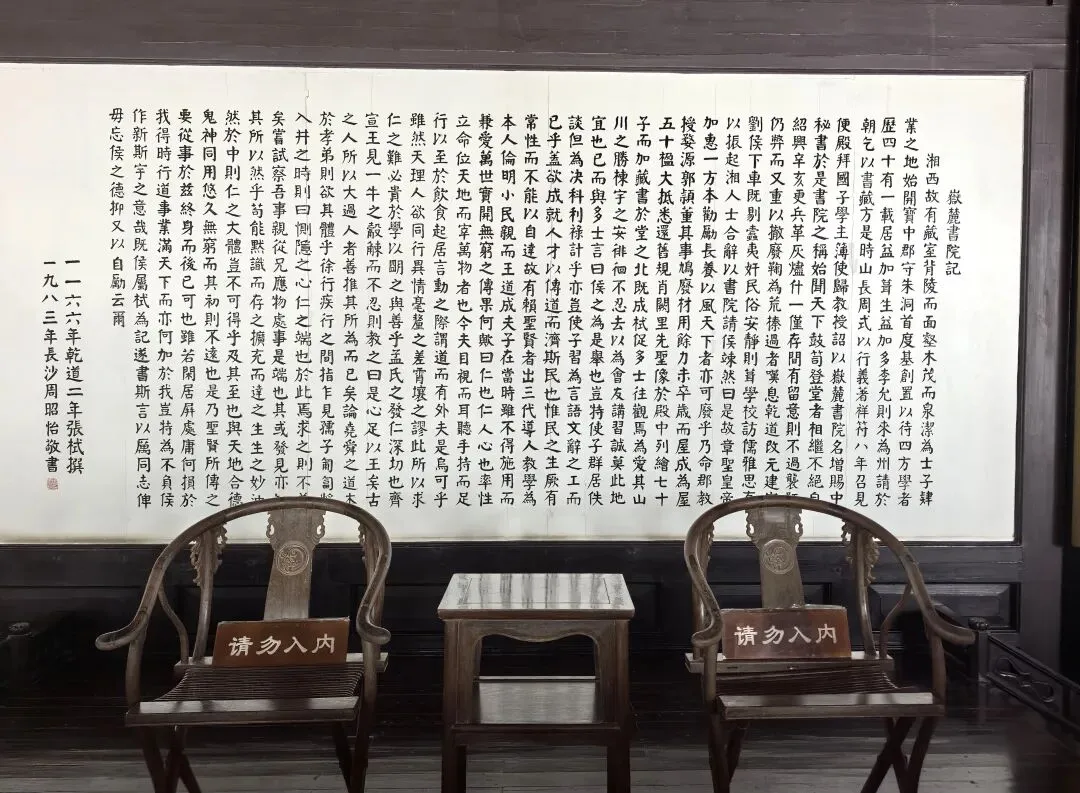 嶽麓書院記
湘西故有藏室背陵而面壑木茂而泉潔為士子肄
業之地始開寶中郡守朱洞首度基創置以待四方學者
歷四十有一載居益加葺生益加多李允則來為州請於
朝乞以書藏方是時山長周式以行義者祥符八年召見
便殿拜國子學主薄使歸教授詔以嶽麓書院名增賜中
秘書於是書院之稱始聞天下鼓笥登堂者相繼不絕自
紹興辛亥更兵革灰燼什一僅存間有留意則不過襲
仍弊而又重以撤廢鞠為荒榛過者嘆息乾道改元建
劉侯下車既剔蠹夷奸民俗安靜則葺學校訪儒雅思有
以振起湘人士合辭以書院請侯竦然曰是故章聖皇帝
加惠一方本勸勵長養以風天下者亦可廢乎乃命郡教
授婺源郭穎董其事鳩廢材用餘力未卒歲而屋成為屋
五十楹大抵悉還舊規肖闕里先聖像於殿中列繪七十
子而加藏書於堂之北既成栻促多士往觀焉為愛其山
川之勝棟宇之安徘徊不忍去以為會友講習誠莫此地
宜也已而與多士言曰侯之為是舉也豈特使子群居佚
談但為決科利祿計乎亦豈使子習為言語文辭之工而
已乎蓋欲成就人才以傳道而濟斯民也惟民之生厥有
常性而不能以自達故有賴聖賢者出三代導人教學為
本人倫明小民親而王道成夫子在當時雖不得施用而
兼愛萬世實開無窮之傳果何歟曰仁也仁人心也率性
立命位天地而宰萬物者也今夫目視而耳聽手持而足
行以至於飲食起居言動之際謂道而有外夫是烏可乎
雖然天理人欲同行異情毫釐之差霄壤之謬此所以求
仁之難必貴於學以明之與善乎孟氏之發仁深切也齊
宣王見一牛之觳觫而不忍則教之曰是心足以王矣古
之人所以大過人者善推其所為而已矣論堯舜之道本
於孝弟則欲其體乎徐行疾行之間指乍見孺子匍匐將
入井之時則曰惻隱之心仁之端也於此焉求之則不
矣嘗試察吾事親從兄應物處事是端也其或發見亦
其所以然乎苟能默識而存之擴充而達之生生之妙油
然於中則仁之大體豈不可得乎及其至也與天地合德
鬼神同用悠久無窮而其初則不遠也是乃聖賢所傳之
要從事於茲終身而後已可也雖若閑居屏處庸何損於
我得時行道事業滿天下而亦何加於我豈特為不負侯
作新斯宇之意哉既侯屬栻為記遂書斯言以厲同志俾
毋忘侯之德抑又以自勵云爾
一一六六年乾道二年張栻撰
一九八三年長沙周昭怡敬書
请勿入内
请勿入内